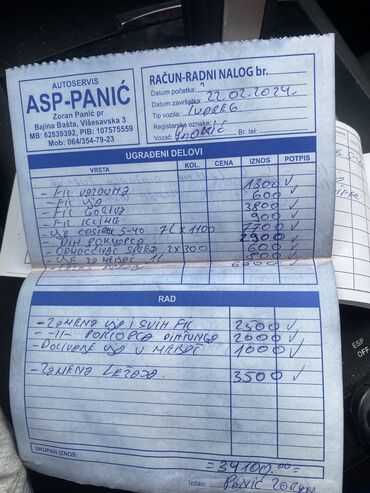 AUTOSERVIS
ASP-PANIĆ
Zoran Panić pr
Bajina Bašta, Višesavska 3
MB: 62839392, PIB: 107575559
Mob: 064/354-79-23
RAČUN-RADNI NALOG br.
Datum početka:
Datum završetka: 22.02.2024
Tip vozila:
Registarske oznake:
Vozač: Br. tel:
UGRAĐENI DELOVI
VRSTA KOL. CENA IZNOS POTPIS
- FIL VAZDUHA 1300 ✓
- FIL ULJA 600 ✓
- FIL GORIVA 3800 ✓
- FIL KLIME 900 ✓
- ULJE 5-40 7L X 1100 7700 ✓
- DIH 2900 ✓
- 2 X 300 600 ✓
- ULJE ZA 1L 800 ✓
6000 ✓
RAD
- ZAMENA ULJA I SVIH FIL 2500 ✓
- -11- DIHTUNGA 2000 ✓
- DOLIVANJE ULJA U 1000 ✓
- ZAMENA 3500 ✓
UKUPAN IZNOS: =34100,00=
Izdao: PANIĆ ZORAN
ESP
OFF